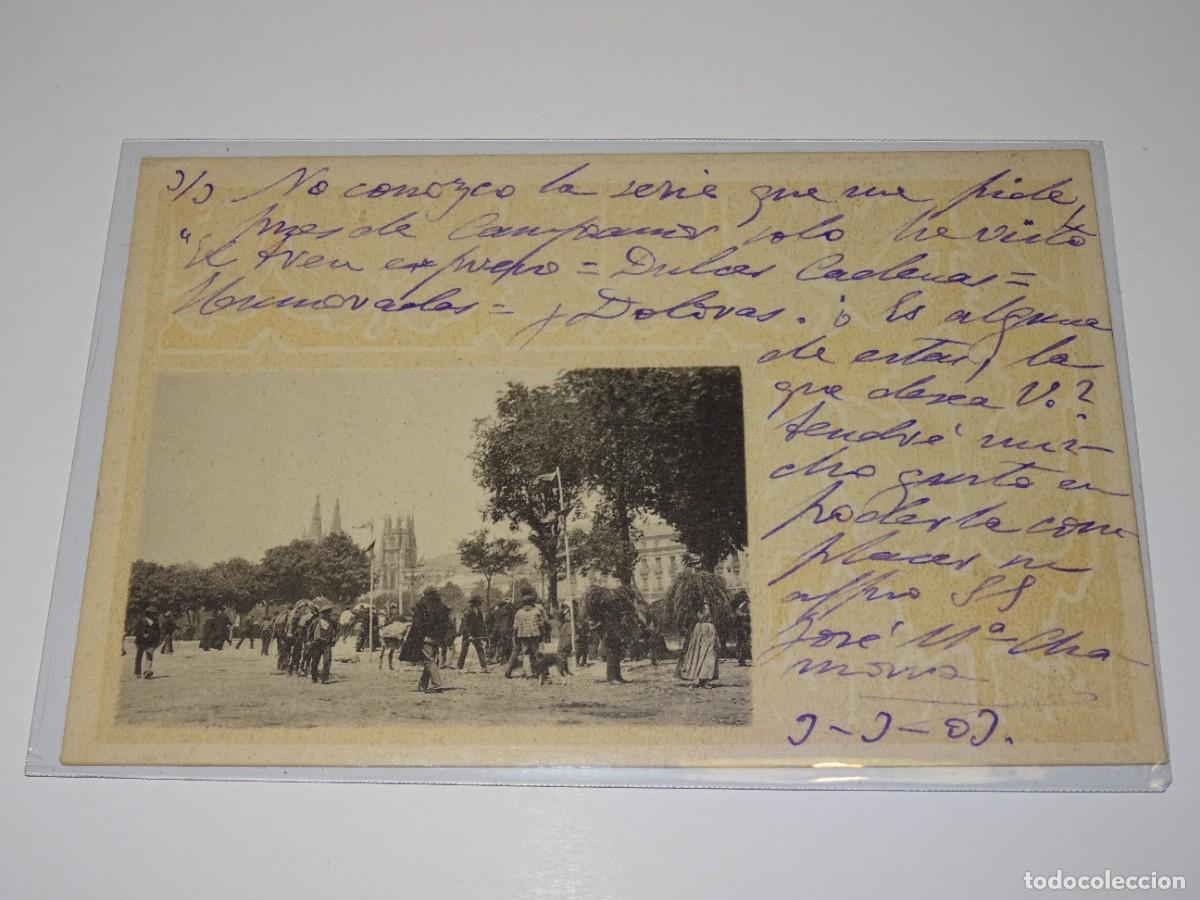 No conozco la serie que me pide,
pues de Campoamor solo he visto
"El tren expreso = Dulces Cadenas =
= y Doloras. ¿Es alguna
de estas, la
que desea V.?
tendré mu-
cho gusto en
poderla com
placer su
affmo SS
José Mª Cha
morro
todocoleccion